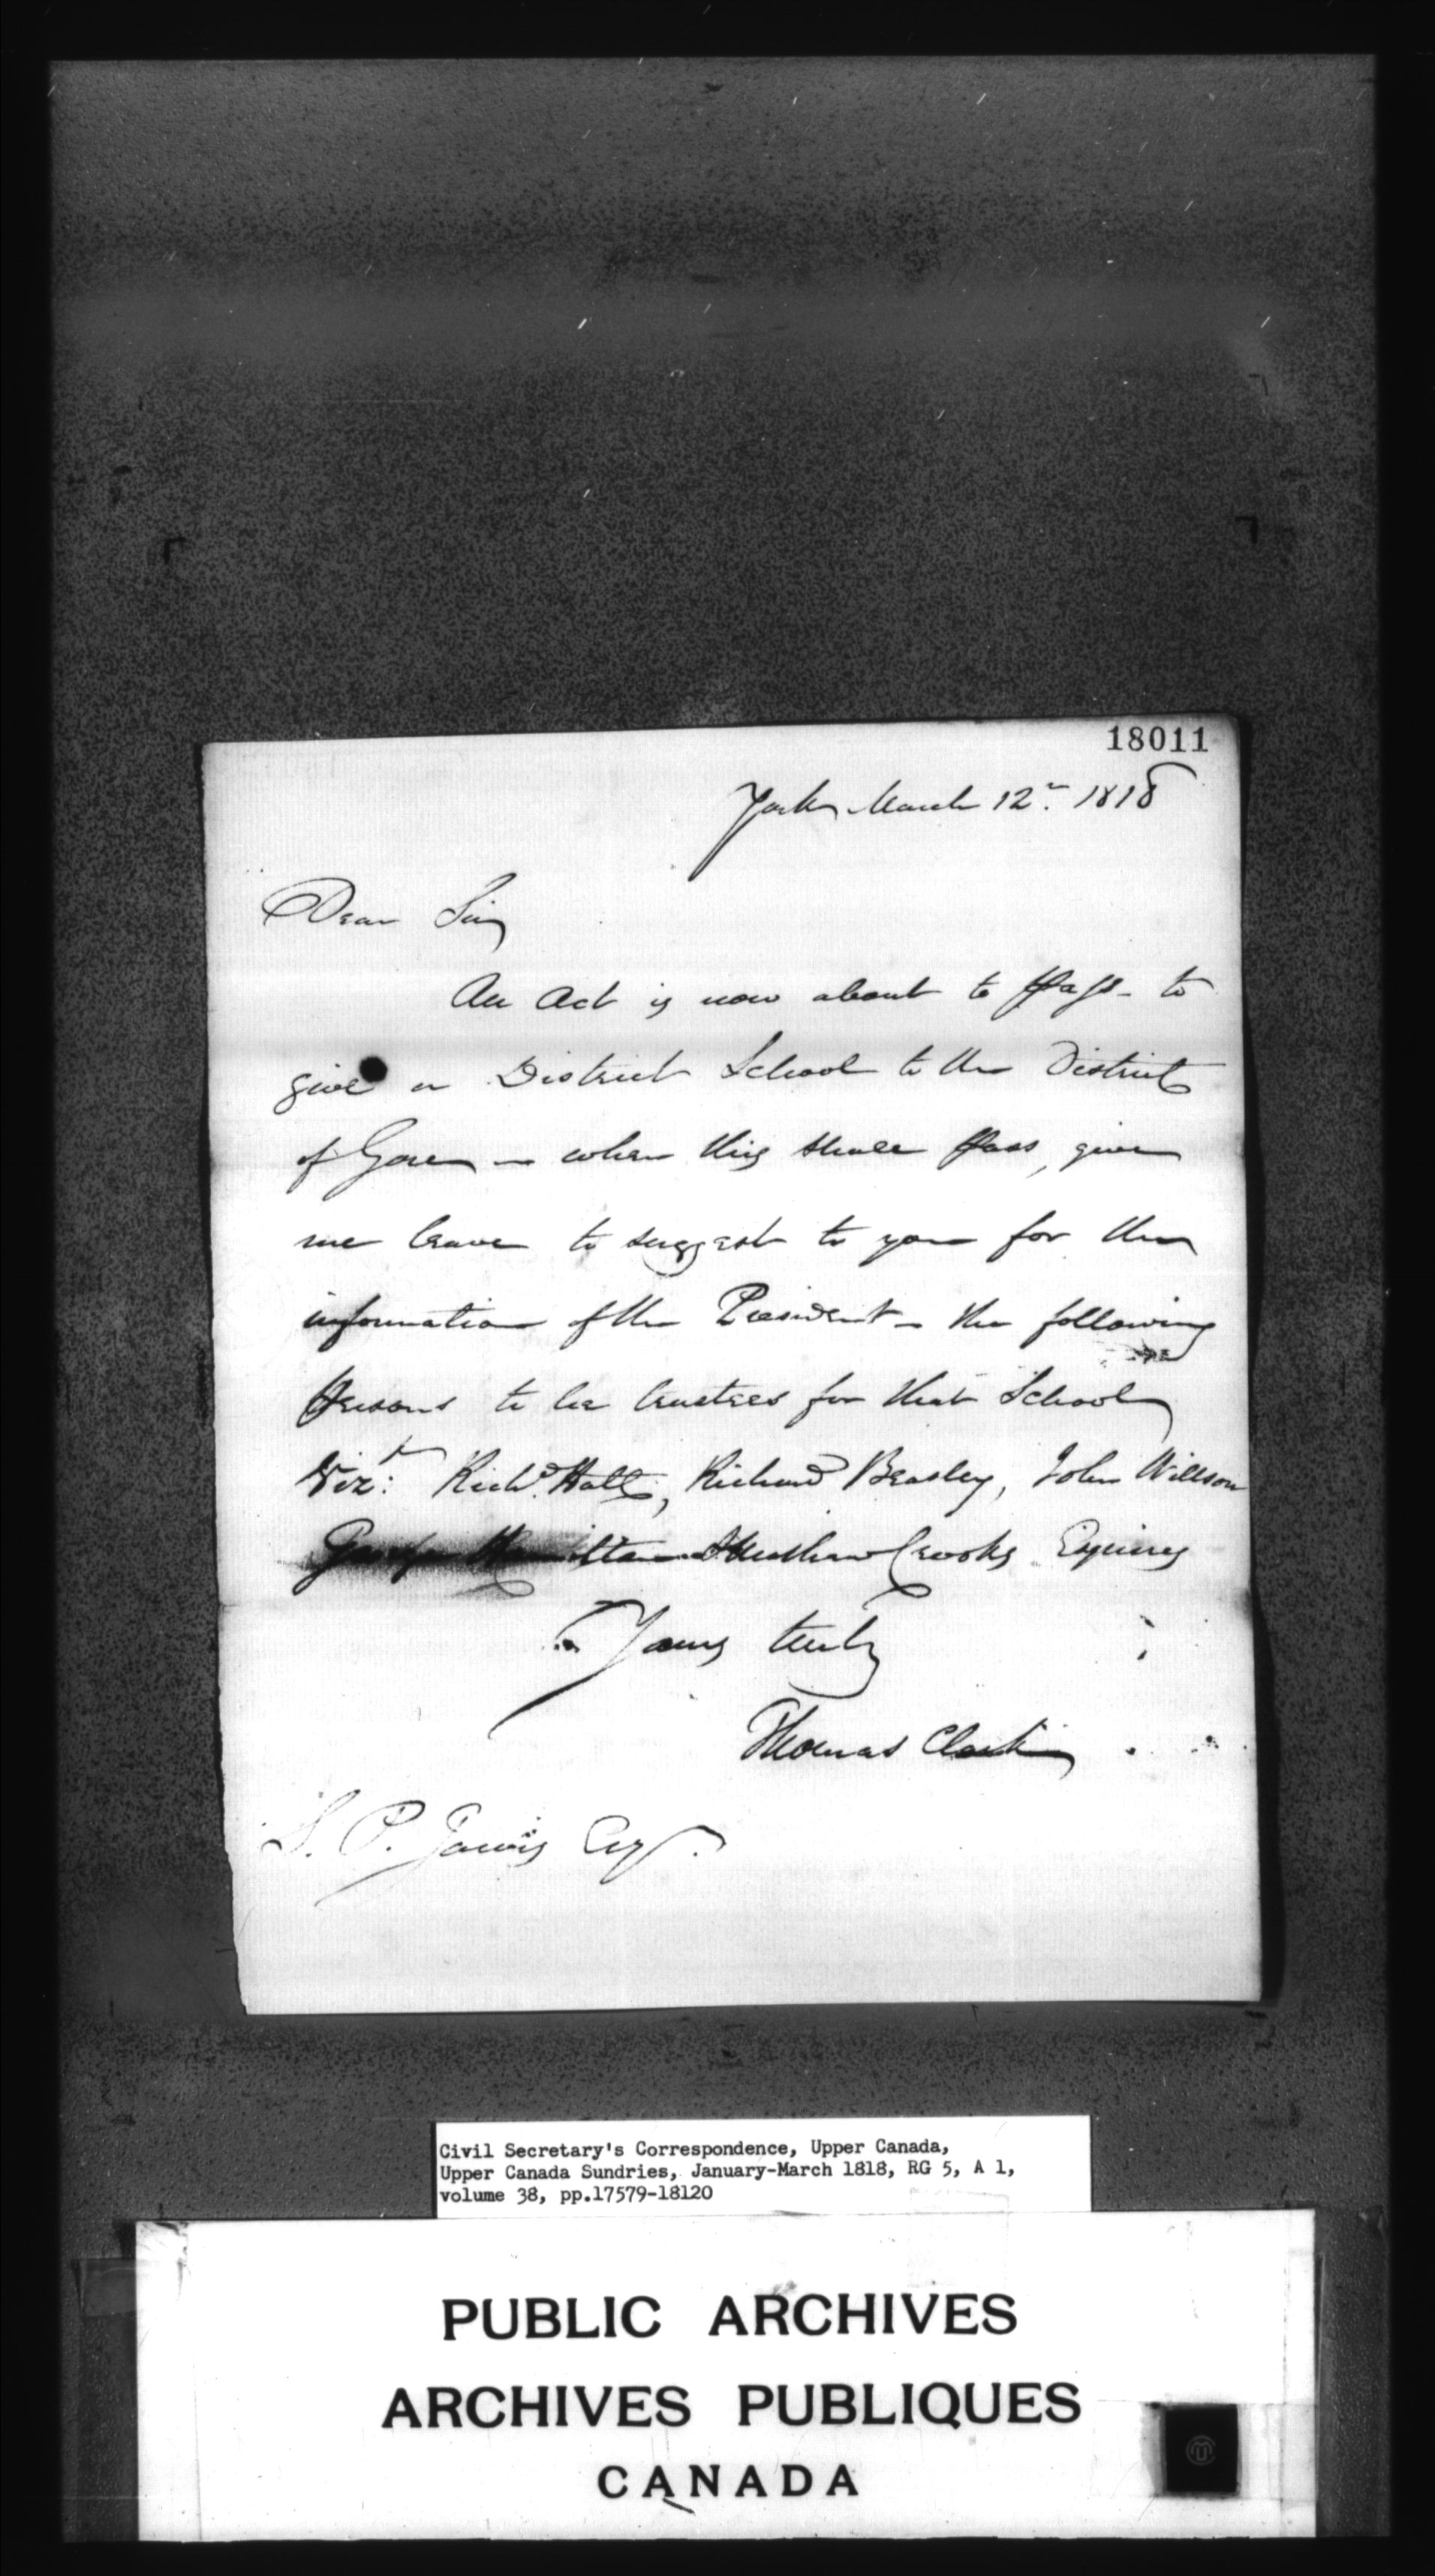 18011
York March 12th 1818
Dear Sir
An Act is now about to pass - to
give a District School to the District
of Gore - when this shall pass, give
me leave to suggest to you for the
information of the President - the following
persons to be trustees for that School
Vizt: Richd. Hatt, Richard Beasley, John Willson
George Hamilton & Mathew Crooks Esquires
Yours truly
Thomas Clark
S. P. Jarvis Esqr.
Civil Secretary's Correspondence, Upper Canada,
Upper Canada Sundries, January-March 1818, RG 5, A 1,
volume 38, pp.17579-18120
PUBLIC ARCHIVES
ARCHIVES PUBLIQUES
CANADA